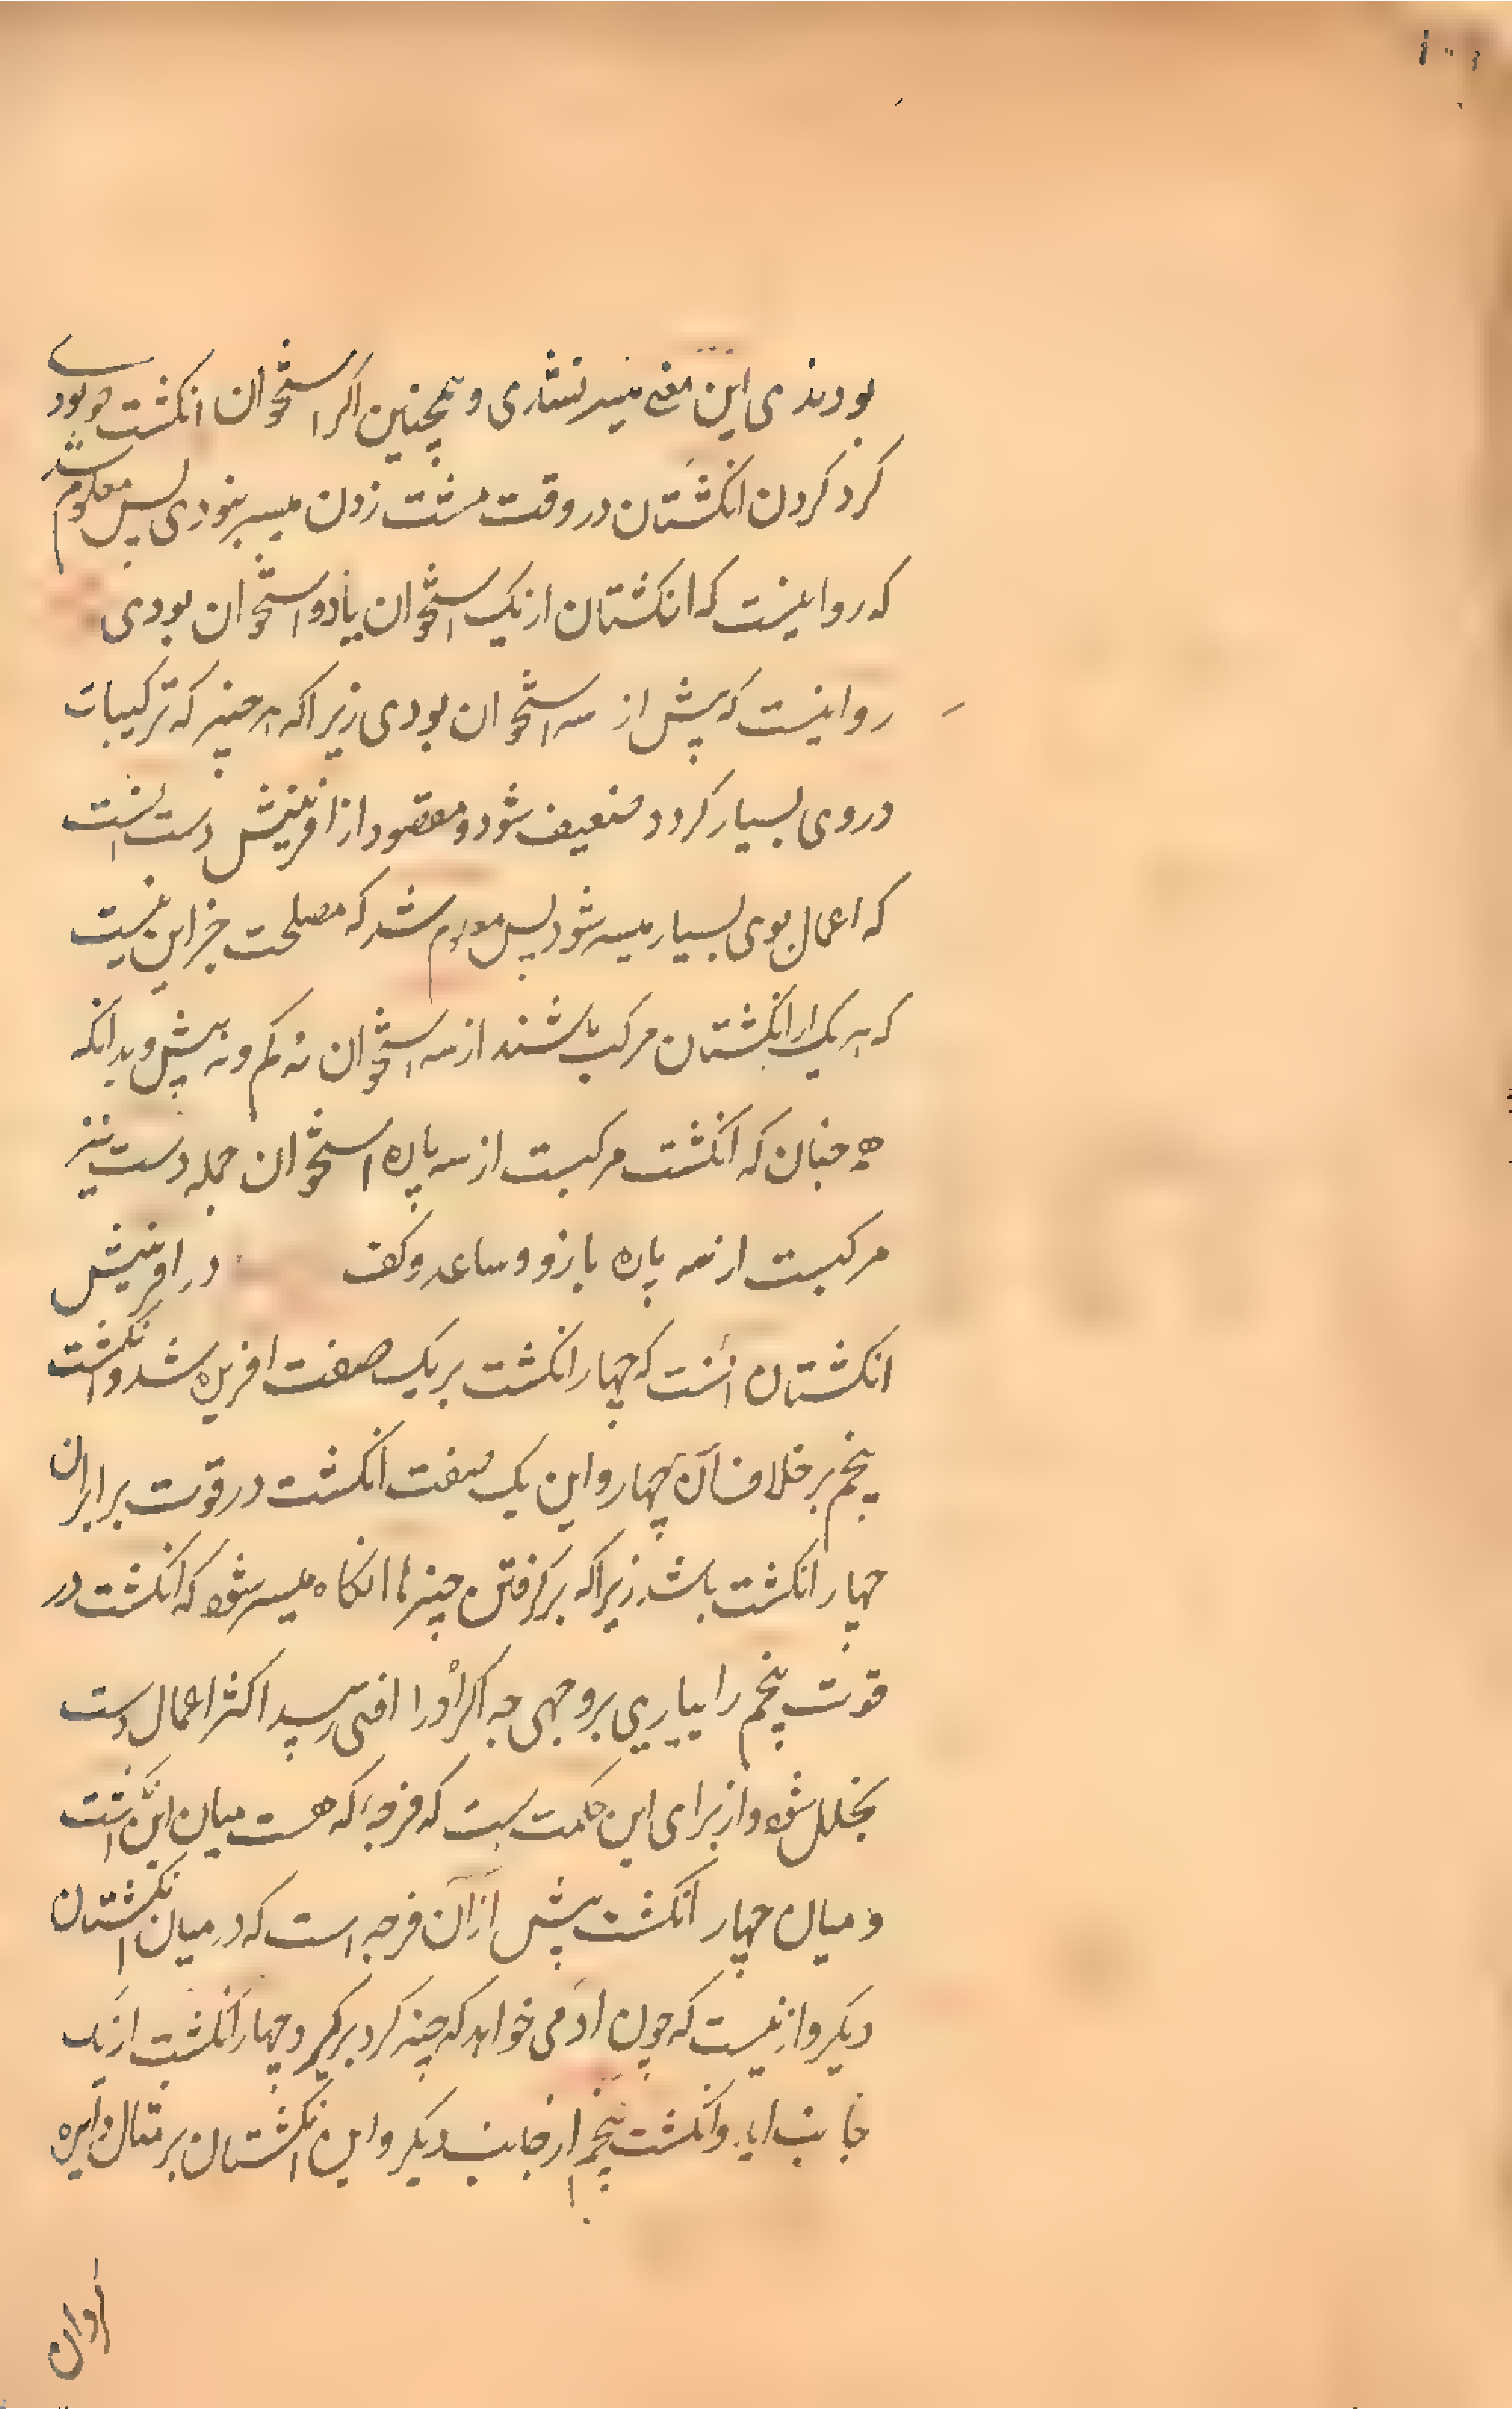 بودندی این معنی میسر نشدی و همچنین اگر استخوان انکشت دو بودی
کرد کردن انکشتان در وقت مشت زدن میسر نبودی پس معلوم شد
که روا نیست که انکشتان از یک استخوان یا دو استخوان بودی
روا نیست که بیش از سه استخوان بودی زیرا که هر چیز که ترکیبات
در وی بسیار کردد ضعیف شود و مقصود از افرینش دست انست
که اعمال بوی بسیار میسر شود پس معلوم شد که مصلحت جز این نیست
که هر یک از انکشتان مرکب باشند از سه استخوان نه کم و نه بیش و بدانکه
همچنان که انکشت مرکبست از سه پاره استخوان جمله دست نیز
مرکبست از سه پاره بازو و ساعد و کف در افرینش
انکشتان انست که چهار انکشت بر یک صفت افریده شد و انکشت
پنجم بر خلاف آن چهار و این یک صفت انکشت در قوت برابر ان
چهار انکشت باشد زیرا که بر کرفتن چیزها انکاه میسر شود که انکشت در
قوت پنجم را بیاریی بر وجهی جه اکر اورا افتی رسد اکثر اعمال دست
بخلل شود و از برای این حکمت است که فرجهٔ که هست میان این انکشت
و میان چهار انکشت بیش از آن فرجه است که در میان انکشتان
دیکر و از نیست که چون ادمی خواهد که چیز کرد بر کیرد چهار انکشت از یک
جانب اید و انکشت پنجم از جانب دیکر و این انکشتان بر مثال دایره